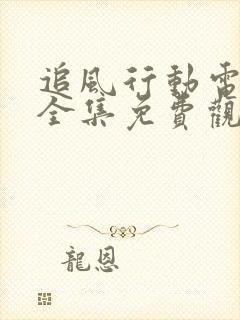 追風行動電
全集免費觀
龍恩